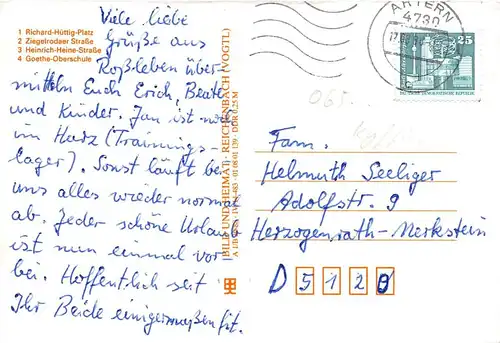 1 Richard-Hüttig-Platz
2 Ziegelrodaer Straße
3 Heinrich-Heine-Straße
4 Goethe-Oberschule
Viele liebe
Grüße aus
Roßleben über-
mitteln Euch Erich, Beate
und Kinder. Jan ist noch
im Harz (Trainings-
lager). Sonst läuft bei
uns alles wieder normal
ab. Jeder schöne Urlaub
ist nun einmal vor-
bei. Hoffentlich seit
Ihr Beide einigermaßen fit.
BILD UND HEIMAT REICHENBACH (VOGTL)
ARTERN
4730
25
DEUTSCHE DEMOKRATISCHE REPUBLIK
065
Fam.
Helmuth Seeliger
Adolfstr. 9
Herzogenrath-Merkstein
D 5120